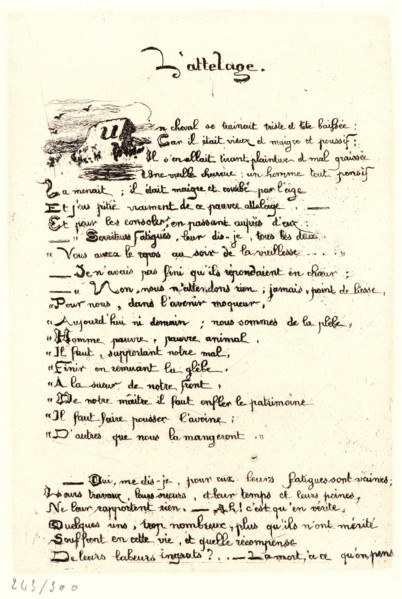 L'attelage.
Un cheval se trainait triste et tête baissée ;
Car il était vieux et maigre et poussif ;
Il s'en allait tirant, plaintive et mal graissée
Une vieille charrue ; un homme tout pensif
La menait ; il était maigre et courbé par l'âge
Et j'eus pitié vraiment de ce pauvre attelage .
Et pour les consoler, en passant auprès d'eux :
— " Serviteurs fatigués, leur dis-je, tous les deux
" Vous aurez le repos au soir de la vieillesse . . . "
— Je n'avais pas fini qu'ils répondaient en chœur ;
— " Non, nous n'attendons rien ; jamais, point de liesse
" Pour nous, dans l'avenir moqueur,
" Aujourd'hui ni demain ; nous sommes de la plèbe,
" Homme pauvre, pauvre animal.
" Il faut, supportant notre mal,
" Finir en remuant la glèbe.
" A la sueur de notre front,
" De notre maître il faut enfler le patrimoine
" Il faut faire pousser l'avoine ;
" D'autres que nous la mangeront . "
— Oui, me dis-je, pour eux leurs fatigues sont vaines ;
Leurs travaux, leurs sueurs, et leur temps et leurs peines,
Ne leur rapportent rien. — Ah ! c'est qu'en vérité,
Quelques uns, trop nombreux, plus qu'ils n'ont mérité
Souffrent en cette vie, et quelle récompense
De leurs labeurs ingrats ? . . — La mort, à ce qu'on pense
243/300